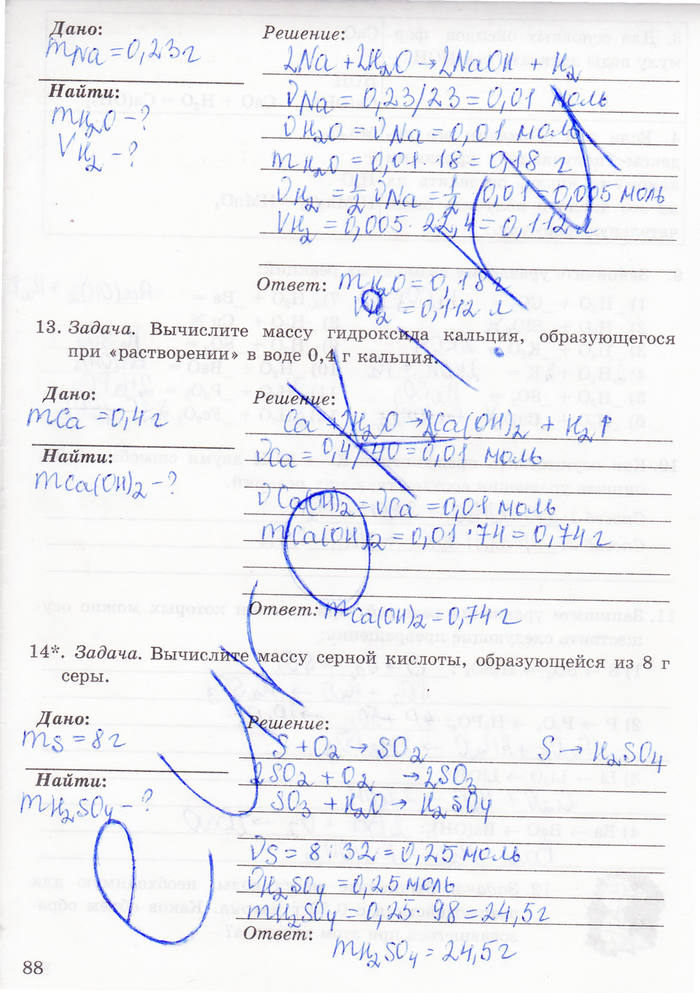 Дано:
mNa = 0,23 г
Найти:
mH₂O - ?
VH₂ - ?
Решение:
2Na + 2H₂O → 2NaOH + H₂
νNa = 0,23/23 = 0,01 моль
νH₂O = νNa = 0,01 моль
mH₂O = 0,01 · 18 = 0,18 г
νH₂ = ½ νNa = ½ · 0,01 = 0,005 моль
VH₂ = 0,005 · 22,4 = 0,112 л
Ответ: mH₂O = 0,18 г
VH₂ = 0,112 л
13. Задача. Вычислите массу гидроксида кальция, образующегося
при «растворении» в воде 0,4 г кальция.
Дано:
mCa = 0,4 г
Найти:
mCa(OH)₂ - ?
Решение:
Ca + 2H₂O → Ca(OH)₂ + H₂↑
νCa = 0,4/40 = 0,01 моль
νCa(OH)₂ = νCa = 0,01 моль
mCa(OH)₂ = 0,01 · 74 = 0,74 г
Ответ: mCa(OH)₂ = 0,74 г
14*. Задача. Вычислите массу серной кислоты, образующейся из 8 г
серы.
Дано:
mS = 8 г
Найти:
mH₂SO₄ - ?
Решение:
S + O₂ → SO₂ S → H₂SO₄
2SO₂ + O₂ → 2SO₃
SO₃ + H₂O → H₂SO₄
νS = 8 : 32 = 0,25 моль
νH₂SO₄ = 0,25 моль
mH₂SO₄ = 0,25 · 98 = 24,5 г
Ответ: mH₂SO₄ = 24,5 г
88